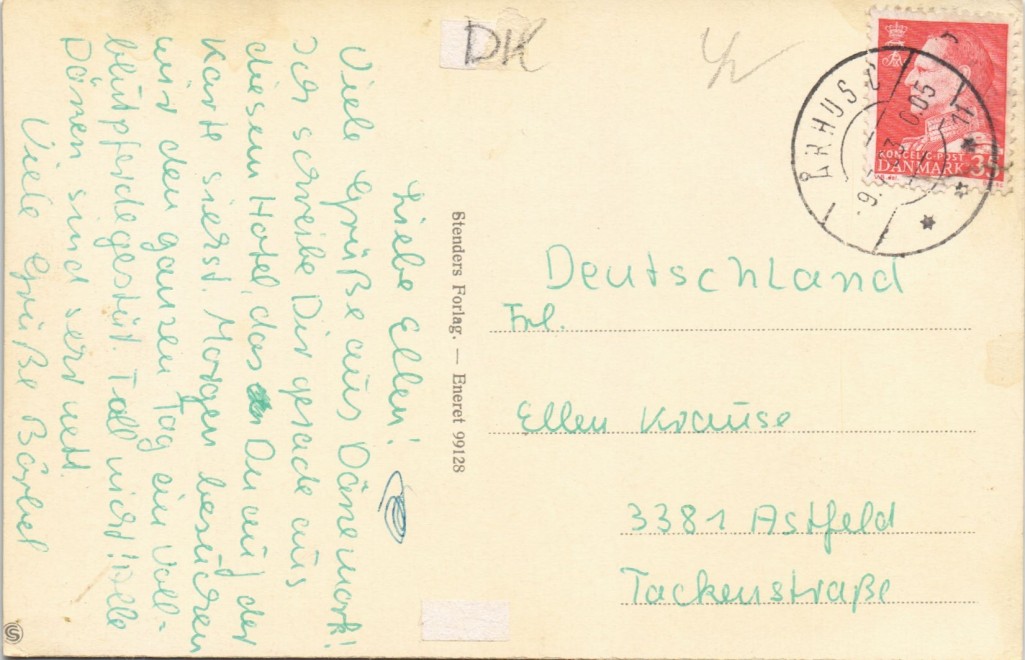 Liebe Ellen!
Viele Grüße aus Dänemark!
Ich schreibe Dir gerade aus
diesem Hotel, das Du auf der
Karte siehst. Morgen besuchen
wir den ganzen Tag ein Voll-
blutpferdegestüt. Toll nicht! Alle
Dänen sind sehr nett!
Viele Grüße Bärbel
Stenders Forlag. — Eneret 99128
DK
ÅRHUS C
KONGELIG POST
DANMARK
Deutschland
Frl.
Ellen Krause
3381 Astfeld
Tackenstraße